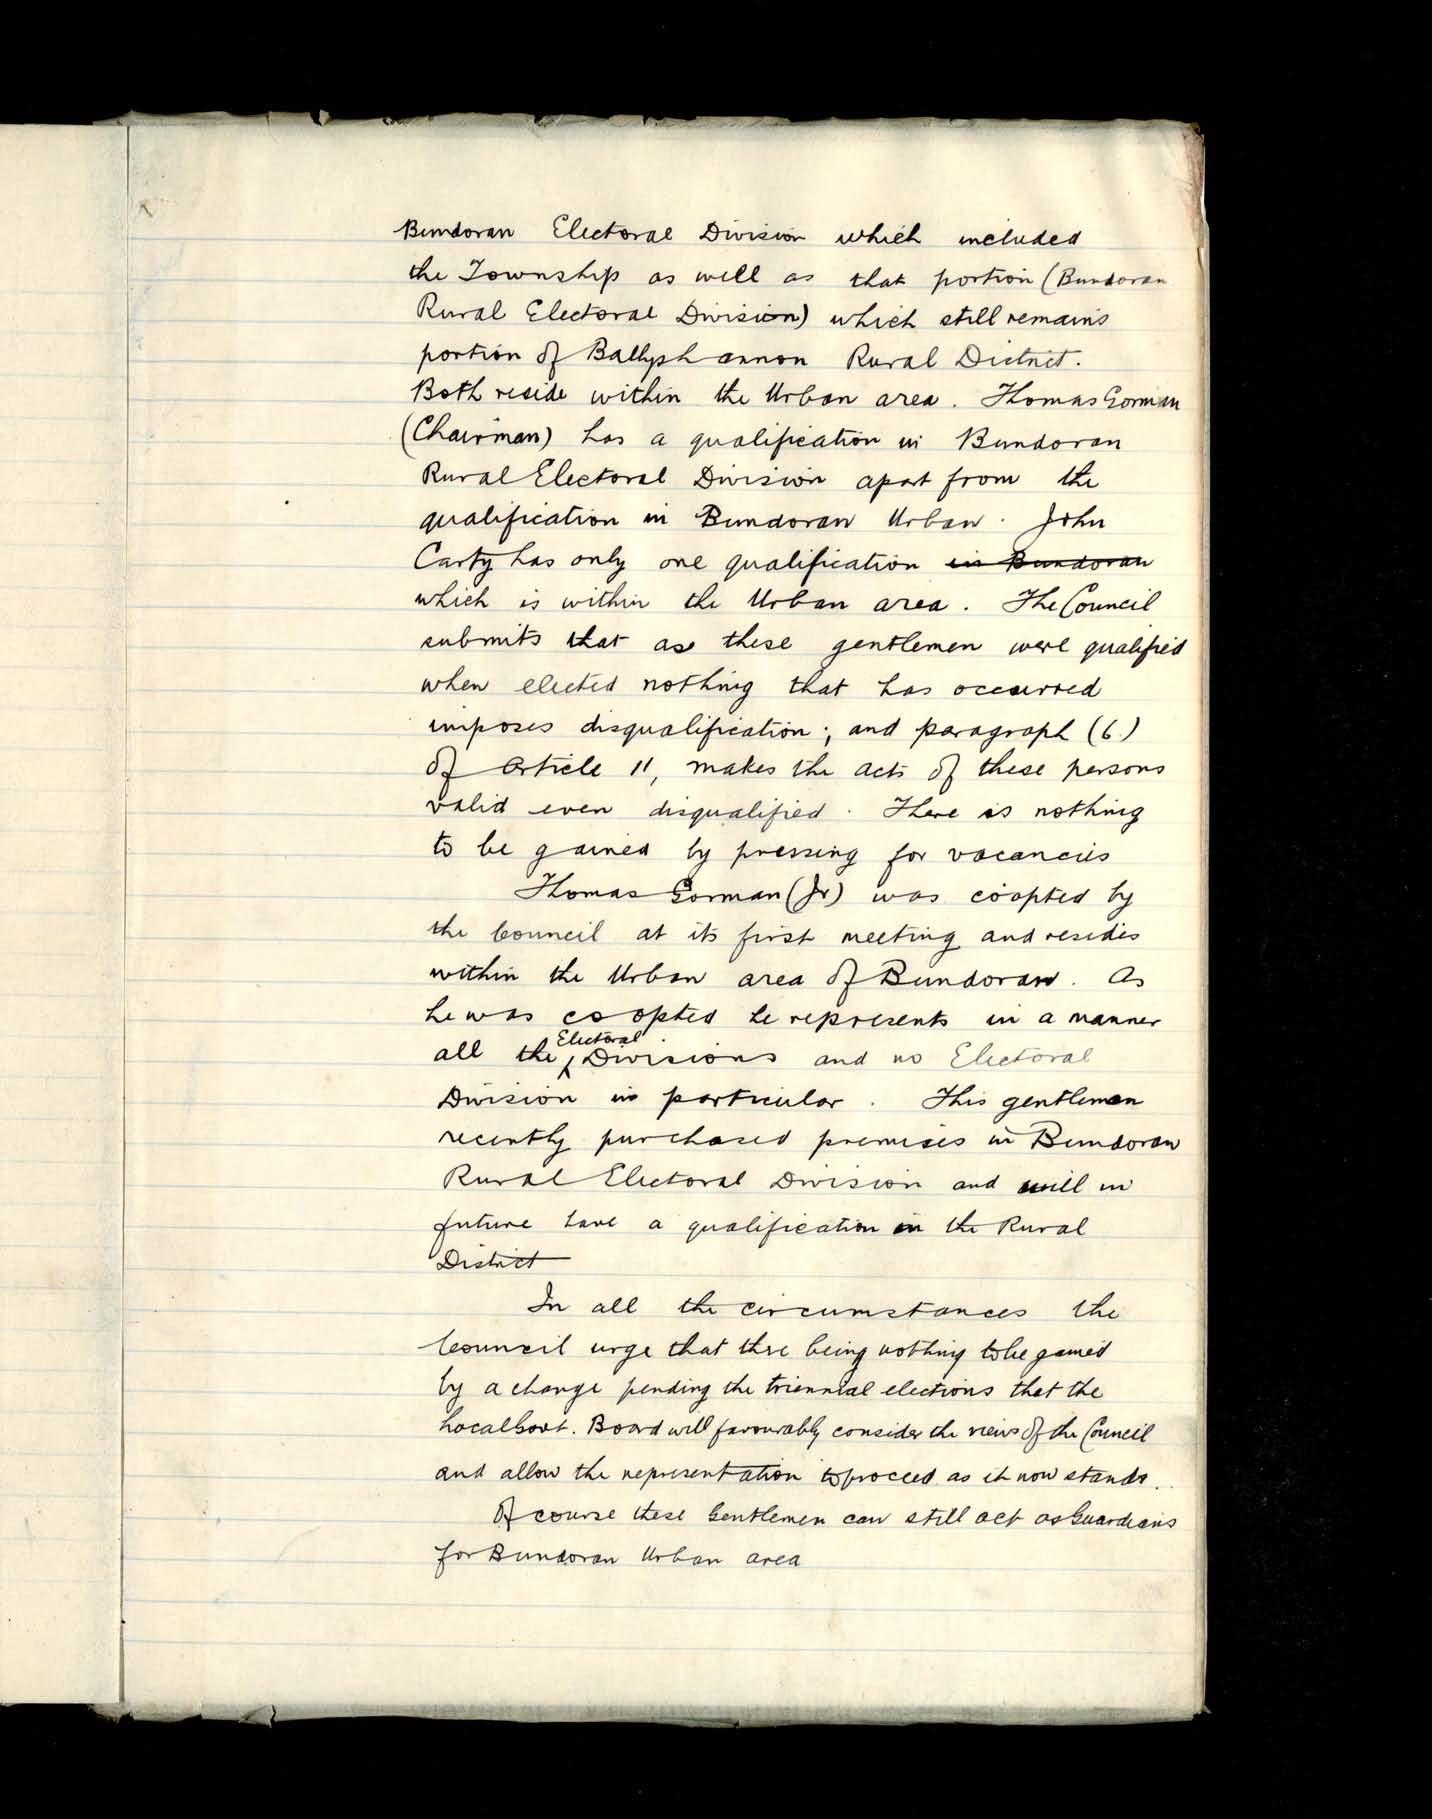 Bundoran Electoral Division which included
the Township as well as that portion (Bundoran
Rural Electoral Division) which still remains
portion of Ballyshannon Rural District.
Both reside within the Urban area. Thomas Gorman
(Chairman) has a qualification in Bundoran
Rural Electoral Division apart from the
qualification in Bundoran Urban. John
Carty has only one qualification in Bundoran
which is within the Urban area. The Council
submits that as these gentlemen were qualified
when elected nothing that has occurred
imposes disqualification; and paragraph (6.)
of Article 11, makes the acts of these persons
valid even disqualified. There is nothing
to be gained by pressing for vacancies
Thomas Gorman (Jr) was coopted by
the Council at its first meeting and resides
within the Urban area of Bundoran. As
he was coopted he represents in a manner
all the Electoral Divisions and no Electoral
Division in particular. This gentleman
recently purchased premises in Bundoran
Rural Electoral Division and will in
future have a qualification in the Rural
District
In all the circumstances the
Council urge that there being nothing to be gained
by a change pending the triennial elections that the
Local Govt. Board will favourably consider the views of the Council
and allow the representation to proceed as it now stands.
Of course these Gentlemen can still act as Guardians
for Bundoran Urban area